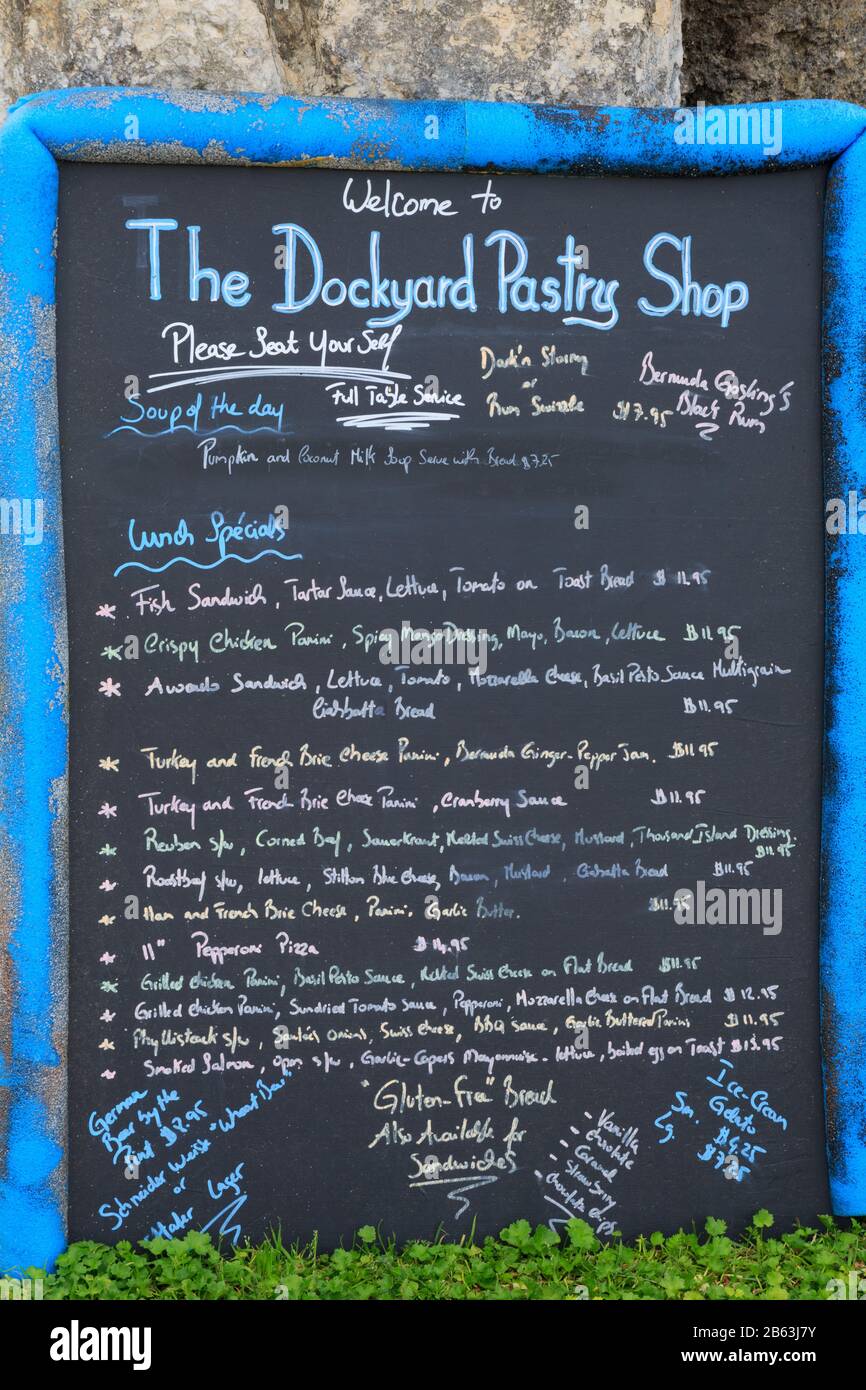 Welcome to
The Dockyard Pastry Shop
Please Seat Your Self
Full Table Service
Dark'n Stormy
or
Rum Swizzle $7.95
Bermuda Gosling's
Black Rum
Soup of the day
Pumpkin and Coconut Milk Soup Serve with Bread $7.25
Lunch Spécials
* Fish Sandwich, Tartar Sauce, Lettuce, Tomato on Toast Bread $11.95
* Crispy Chicken Panini, Spicy Mango Dressing, Mayo, Bacon, Lettuce $11.95
* Avocado Sandwich, Lettuce, Tomato, Mozzarella Cheese, Basil Pesto Sauce Multigrain
Ciabatta Bread $11.95
* Turkey and French Brie Cheese Panini, Bermuda Ginger-Pepper Jam. $11.95
* Turkey and French Brie Cheese Panini, Cranberry Sauce $11.95
* Reuben s/w, Corned Beef, Sauerkraut, Melted Swiss Cheese, Mustard, Thousand Island Dressing.
$11.95
* Roastbeef s/w, lettuce, Stilton Blue Cheese, Bacon, Mustard, Ciabatta Bread $11.95
* Ham and French Brie Cheese, Panini. Garlic Butter. $11.95
* 11" Pepperoni Pizza $14.95
* Grilled chicken Panini, Basil Pesto Sauce, Melted Swiss Cheese on Flat Bread $11.95
* Grilled Chicken Panini, Sundried Tomato Sauce, Pepperoni, Mozzarella Cheese on Flat Bread $12.95
* Phyllisteack s/w, Sautées onions, Swiss Cheese, BBQ Sauce, Garlic Buttered Panini $11.95
* Smoked Salmon, open s/w, Garlic-Capers Mayonnaise - lettuce, boiled egg on Toast $13.95
German
Beer by the
Pint $7.95
Schneider Weisse "Wheat Beer"
or
Lager
"Gluten-free" Bread
Also Available for
Sandwiches
- Vanilla
- chocolate
- Caramel
- Strawberry
- chocolate chips
Ice-Cream
Gelato
Sm. $4.25
Lg. $7.25
alamy
Image ID: 2B63J7Y
www.alamy.com